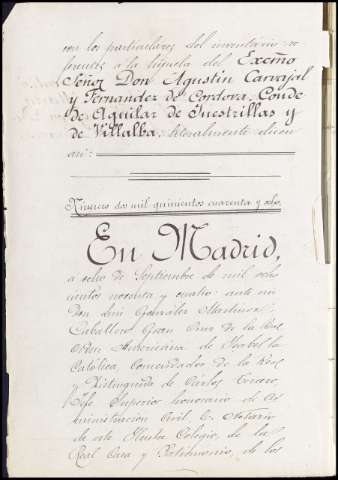 con los particulares del inventario re
ferente á la hijuela del Excmo
Señor Don Agustin Carvajal
y Fernandez de Córdova, Conde
de Aguilar de Inestrillas y
de Villalba, literalmente dicen
así:
Número dos mil quinientos cuarenta y ocho.
En Madrid,
a ocho de Septiembre de mil ocho
cientos noventa y cuatro: ante mí
Don Luis Gonzalez Martinez,
Caballero Gran Cruz de la Real
Orden Americana de Isabel la
Católica, Comendador de la Real
y Distinguida de Cárlos tercero,
Jefe Superior honorario de Ad
ministracion Civil, & Notario
de este Ilustre Colegio, de la
Real Casa y Patrimonio, de los